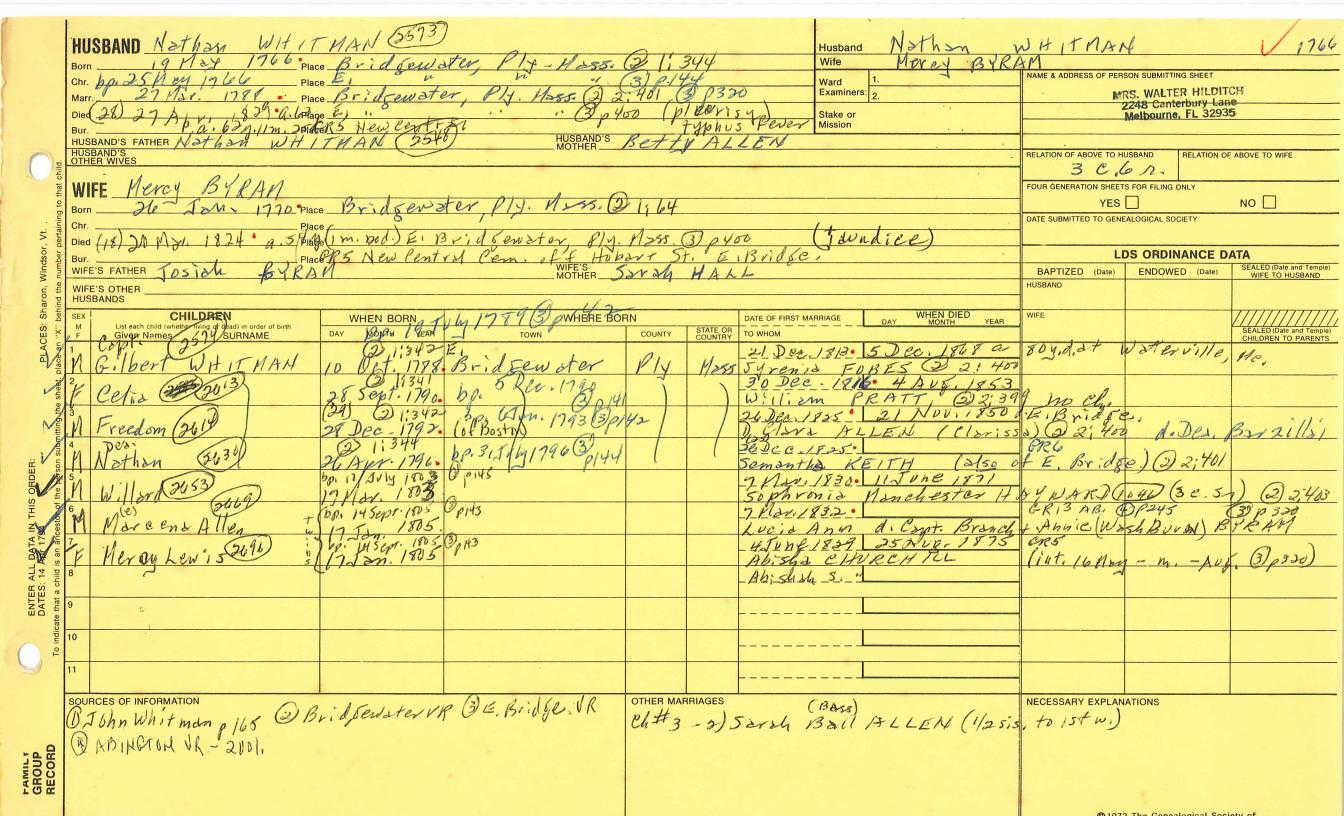 HUSBAND Nathan WHITMAN 2573
Born 19 May 1766 Place Bridgewater, Ply-Mass. ② 1:344
Chr. bp. 25 May 1766 Place E. " " " ③ p144
Marr. 27 Mar. 1788 Place Bridgewater, Ply. Mass. ② 2:401 ③ p320
Died (28) 27 Apr. 1829 Place E. " " ③ p400 (pleurisy
Bur. Place GR5 New Centr. typhus fever
HUSBAND'S FATHER Nathan WHITMAN 2548 HUSBAND'S MOTHER Betty ALLEN
HUSBAND'S OTHER WIVES
Husband Nathan WHITMAN 1766
Wife Mercy BYRAM
Ward Examiners: 1.
2.
Stake or Mission
NAME & ADDRESS OF PERSON SUBMITTING SHEET
MRS. WALTER HILDITCH
2248 Canterbury Lane
Melbourne, FL 32935
RELATION OF ABOVE TO HUSBAND RELATION OF ABOVE TO WIFE
3 c. 6 r.
FOUR GENERATION SHEETS FOR FILING ONLY
YES NO
DATE SUBMITTED TO GENEALOGICAL SOCIETY
WIFE Mercy BYRAM
Born 26 Jan. 1770 Place Bridgewater, Ply. Mass. ② 1:64
Chr. Place
Died (18) 20 Mar. 1824 Place (1m. bod.) E. Bridgewater, Ply. Mass. ③ p400 (jaundice)
Bur. Place GR5 New Central Cem. off Hobart St. E. Bridge.
WIFE'S FATHER Josiah BYRAM WIFE'S MOTHER Sarah HALL
WIFE'S OTHER HUSBANDS
LDS ORDINANCE DATA
BAPTIZED (Date) ENDOWED (Date) SEALED (Date and Temple) WIFE TO HUSBAND
HUSBAND
WIFE
SEALED (Date and Temple) CHILDREN TO PARENTS
SEX M F
CHILDREN
List each child (whether living or dead) in order of birth
Given Names SURNAME
WHEN BORN DAY MONTH YEAR
WHERE BORN TOWN COUNTY STATE OR COUNTRY
DATE OF FIRST MARRIAGE TO WHOM
WHEN DIED DAY MONTH YEAR
bp. 19 July 1789 ③ p142
1 M Capt. Gilbert WHITMAN 2574 ② 1:342 10 Oct. 1788 E. Bridgewater Ply Mass 21 Dec. 1812 5 Dec. 1868 a 80y. d. at Waterville, Me.
Syrenia FOBES ② 2:400
2 F Celia 2613 ② 1:341 28 Sept. 1790 bp. 5 Dec. 1790 ③ p141 30 Dec. 1816 4 Aug. 1853
William PRATT ② 2:399 no ch.
3 M Freedom 2614 (29) ② 1:342 28 Dec. 1792 bp. 6 Jan. 1793 ③ p142 (of Boston) 26 Dec. 1825 21 Nov. 1850 E. Bridge.
D. Clara ALLEN (Clarissa) ② 2:400 d. Dea. Barzillai
4 M Dea. Nathan 2630 ② 1:344 26 Apr. 1796 bp. 31 July 1796 ③ p144 26 Dec. 1825 GR6
Semantha KEITH (also of E. Bridge) ② 2:401
5 M Willard 2653 bp. 17 July 1803 ③ p145 17 Mar. 1803 7 Mar. 1830 11 June 1871
Sophronia Manchester HAYNARD 1046 (3c. 5r) ② 2:403
6 M Marcena Allen (e) 2669 bp. 14 Sept. 1805 ③ p143 17 Jan. 1805 7 Mar. 1832 GR13 AB. ④ p245 ③ p320
Lucia Ann d. Capt. Branch + Annie (Washburn) BYRAM
7 F Mercy Lewis 2696 bp. 14 Sept. 1805 ③ p143 17 Jan. 1805 4 June 1829 25 Nov. 1875 GR5
Abisha CHURCHILL (int. 16 May - m. - Aug. ③ p320)
8 Abishah S. "
9
10
11
SOURCES OF INFORMATION
① John Whitman p165 ② Bridgewater VR ③ E. Bridge. VR
④ ABINGTON VR - 2001.
OTHER MARRIAGES
Ch #3 - 2) Sarah Ball (Bass) ALLEN (1/2 sis. to 1st w.)
NECESSARY EXPLANATIONS
FAMILY GROUP RECORD
ENTER ALL DATA IN THIS ORDER:
PLACES: Sharon, Windsor, Vt.
©1972 The Genealogical Society of